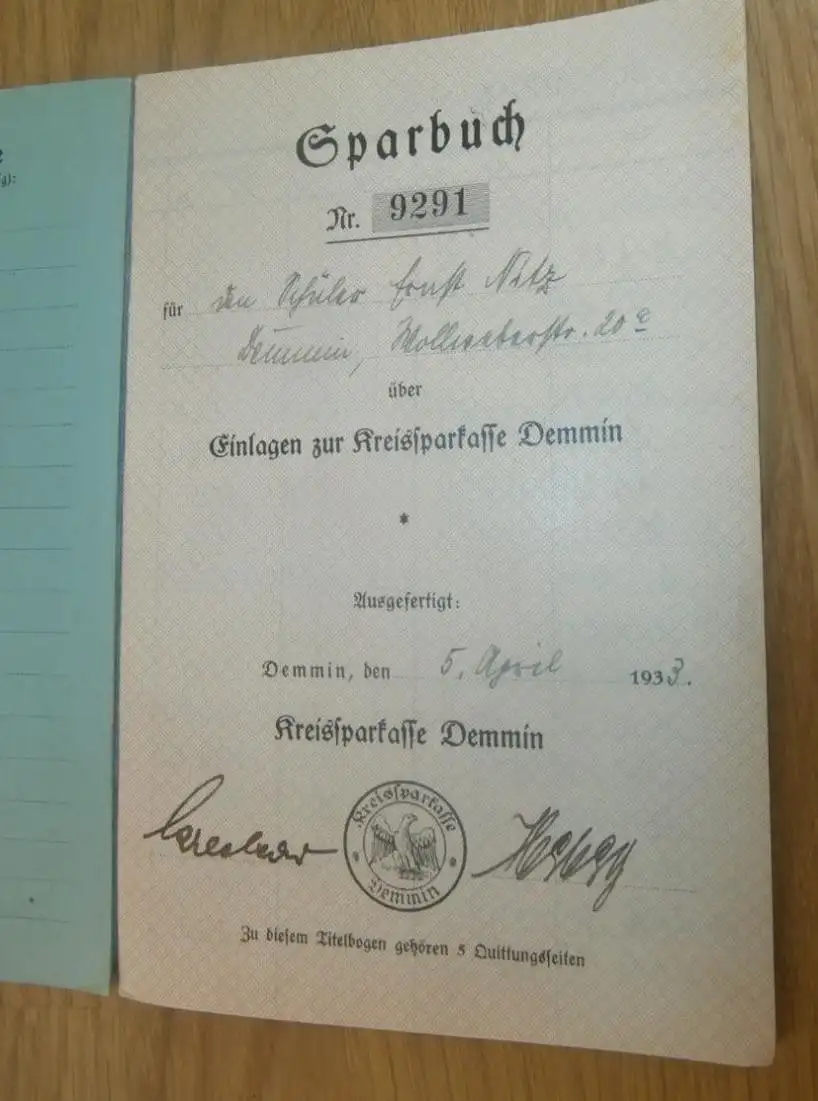 e
g):
Sparbuch
Nr. 9291
für den Schüler Ernst Nitz
Demmin, Wollweberstr. 20
über
Einlagen zur Kreissparkasse Demmin
*
Ausgefertigt:
Demmin, den 5. April 1933.
Kreissparkasse Demmin
Kreissparkasse
Demmin
Zu diesem Titelbogen gehören 5 Quittungsseiten